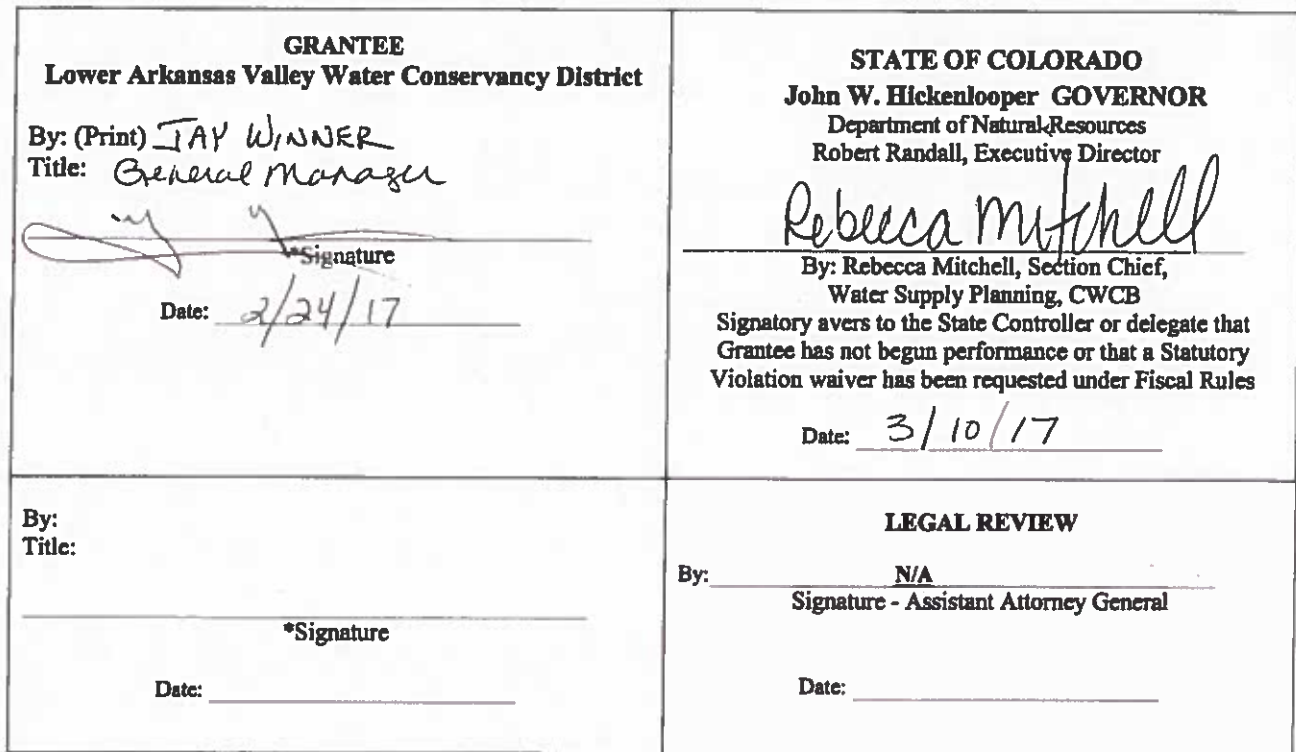 GRANTEE
Lower Arkansas Valley Water Conservancy District
By: (Print) JAY WINNER
Title: General Manager
*Signature
Date: 2/24/17
STATE OF COLORADO
John W. Hickenlooper GOVERNOR
Department of Natural Resources
Robert Randall, Executive Director
Rebecca Mitchell
By: Rebecca Mitchell, Section Chief,
Water Supply Planning, CWCB
Signatory avers to the State Controller or delegate that
Grantee has not begun performance or that a Statutory
Violation waiver has been requested under Fiscal Rules
Date: 3/10/17
By:
Title:
*Signature
Date:
LEGAL REVIEW
By: N/A
Signature - Assistant Attorney General
Date: